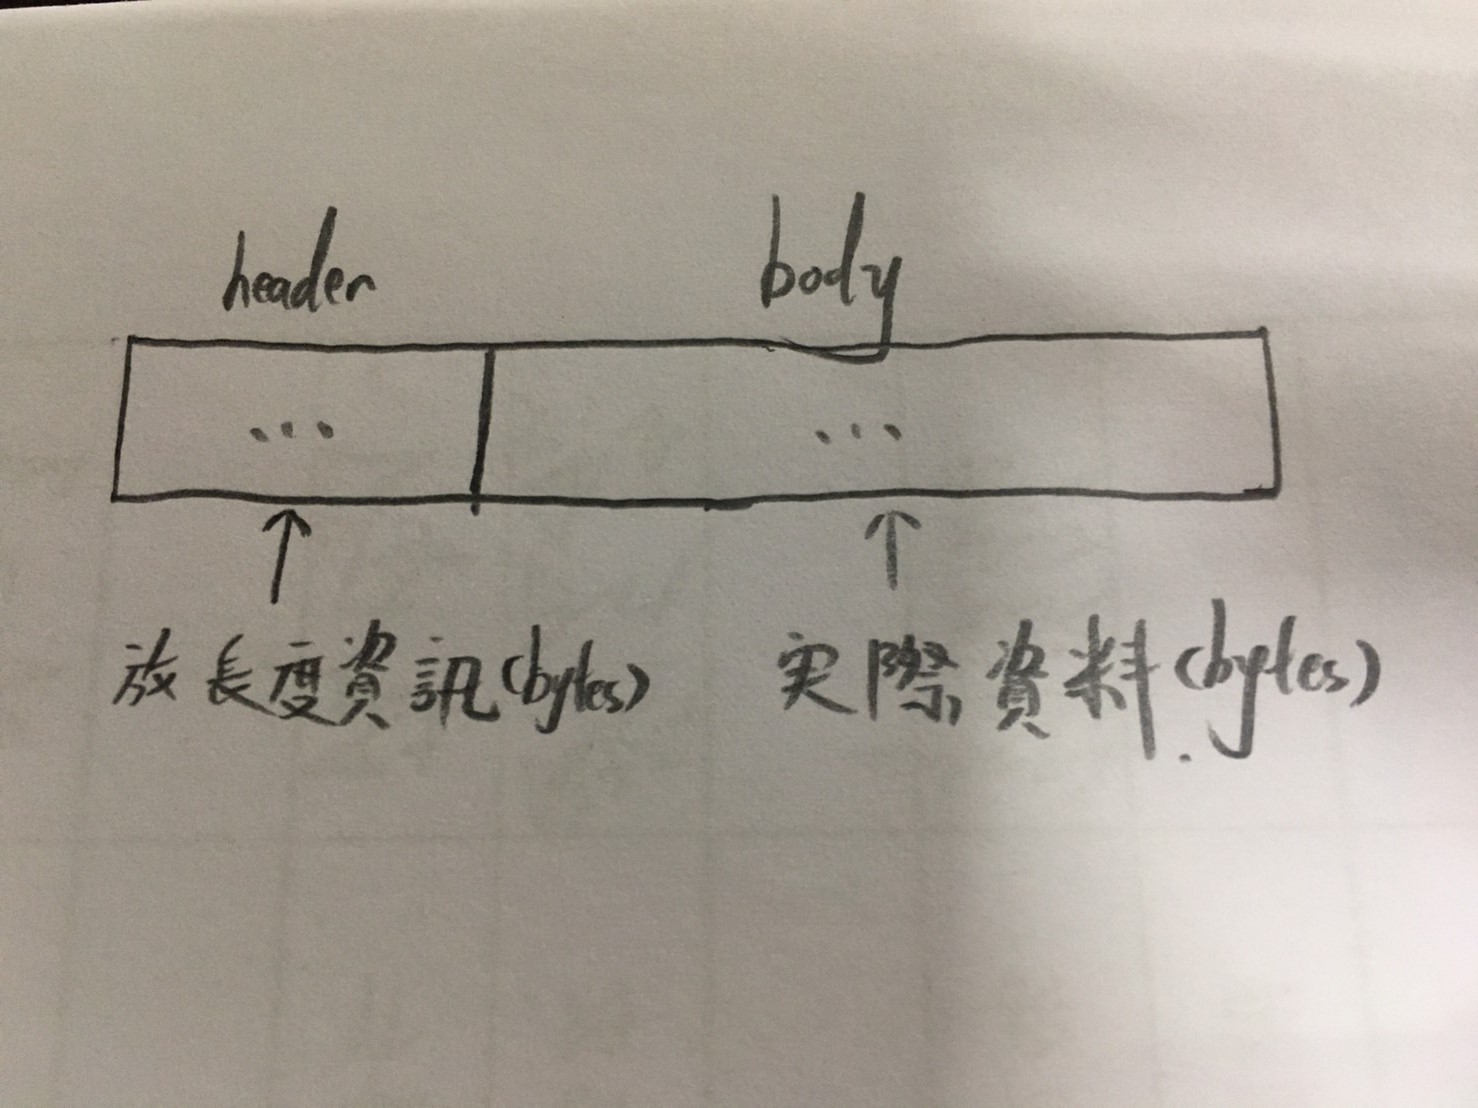 header body
... ...
放長度資訊(bytes) 实際資料(bytes)